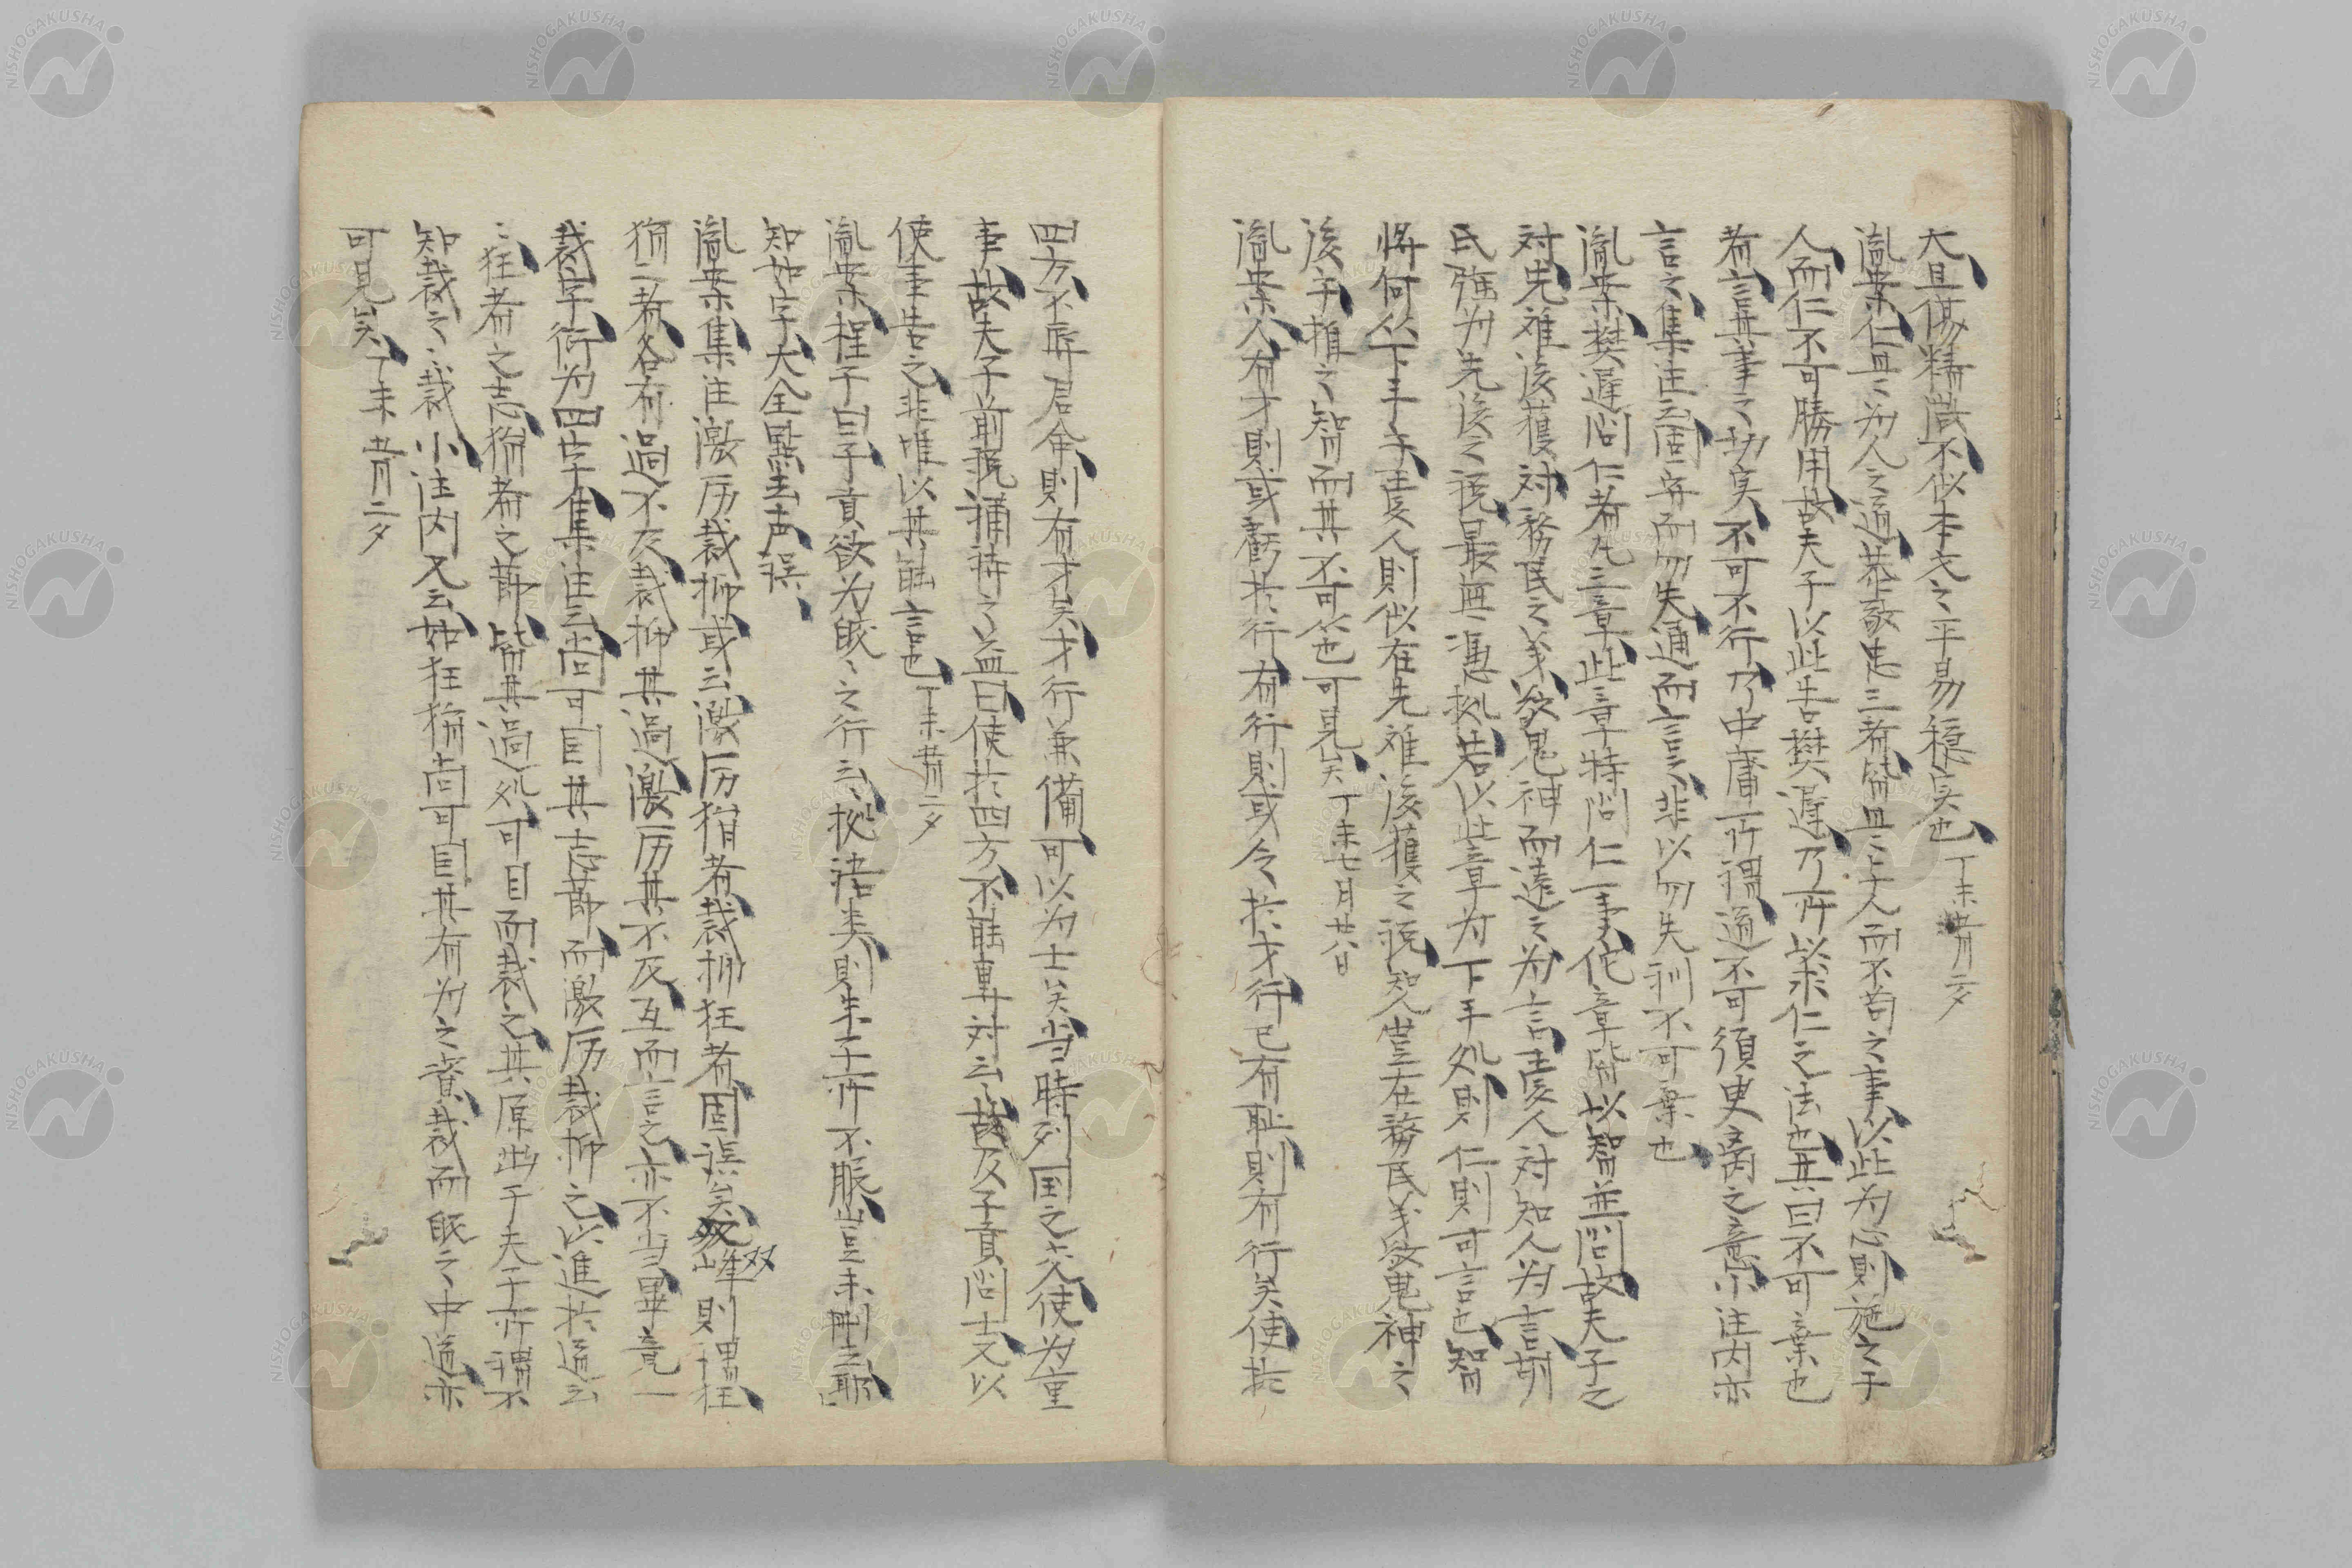 大且傷精微不似本文之平易穏実也 丁未
胤案仁且〻為人之通恭敬忠三者皆且〻与人而不苟之事以此為心則施之于
人而仁不可勝用故夫子以此告樊遅乃所以求仁之法也其曰不可棄也
者言其事之切実不可不行乃中庸所謂道不可須臾离之意小注内亦
言之集注云固守而勿失通而言之非以勿失訓不可棄也
胤案樊遅問仁者凡三章此章特問仁一事佗章皆以智並問故夫子之
対先难後獲対務民之义敬鬼神而遠之為言愛人対知人為言胡
氏強为先後之説最無憑拠若以此章为下手処則仁則可言也智
将何以下手乎愛人則似在先难後獲之説知人豈在務民义敬鬼神之
後乎推之智而其不可答也可見矣 丁未七月廿八日
胤案人有才則或虧於行有行則或令於才行己有恥則有行矣使於
四方不辱君命則有才矣才行兼備可以为士矣当時列国之交使为重
事故夫子前説誦詩之益曰使於四方不能専対云〻故及子貢問士又以
使事告之非唯以其能言也 丁未
胤案程子曰子貢欲为皎〻之行云〻按語类則朱子所不服豈未刪之耶
知如字大全點去声誤
胤案集注激厉裁抑或云激厉狷者裁抑狂者固誤矣双峰則謂狂
狷二者各有過不及裁抑其過激厉其不及互而言之亦不当畢竟一
裁字衍为四字集注云尚可因其志節而激厉裁抑之以進於道云
〻狂者之志狷者之節皆其過処可因而裁之其原出于夫子所謂不
知裁之〻裁小注内又云如狂狷尚可因其有为之資裁而帰之中道亦
可見矣丁未